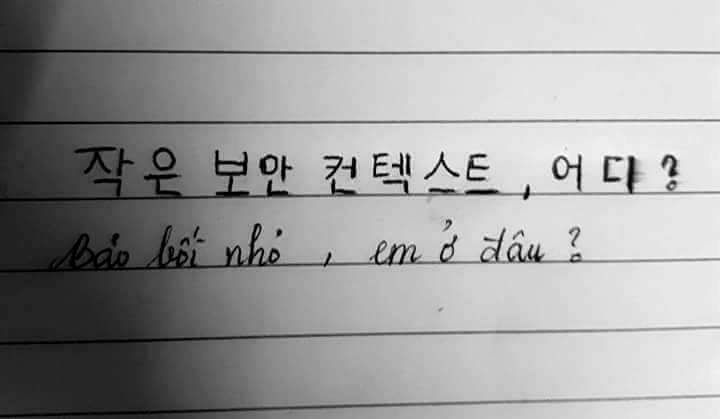 작은 보안 컨텍스트, 어디?
Bảo bối nhỏ, em ở đâu?